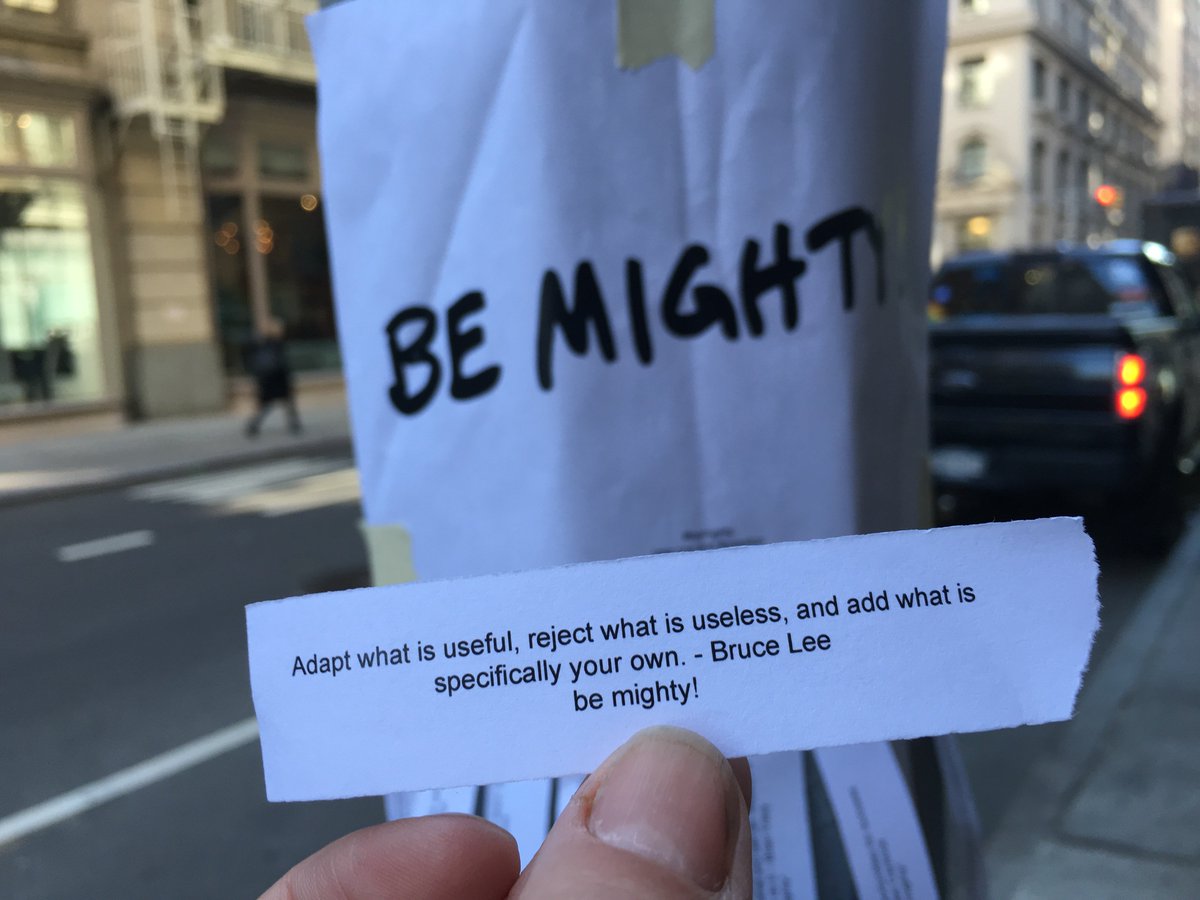 BE MIGHTY
Adapt what is useful, reject what is useless, and add what is
specifically your own. - Bruce Lee
be mighty!